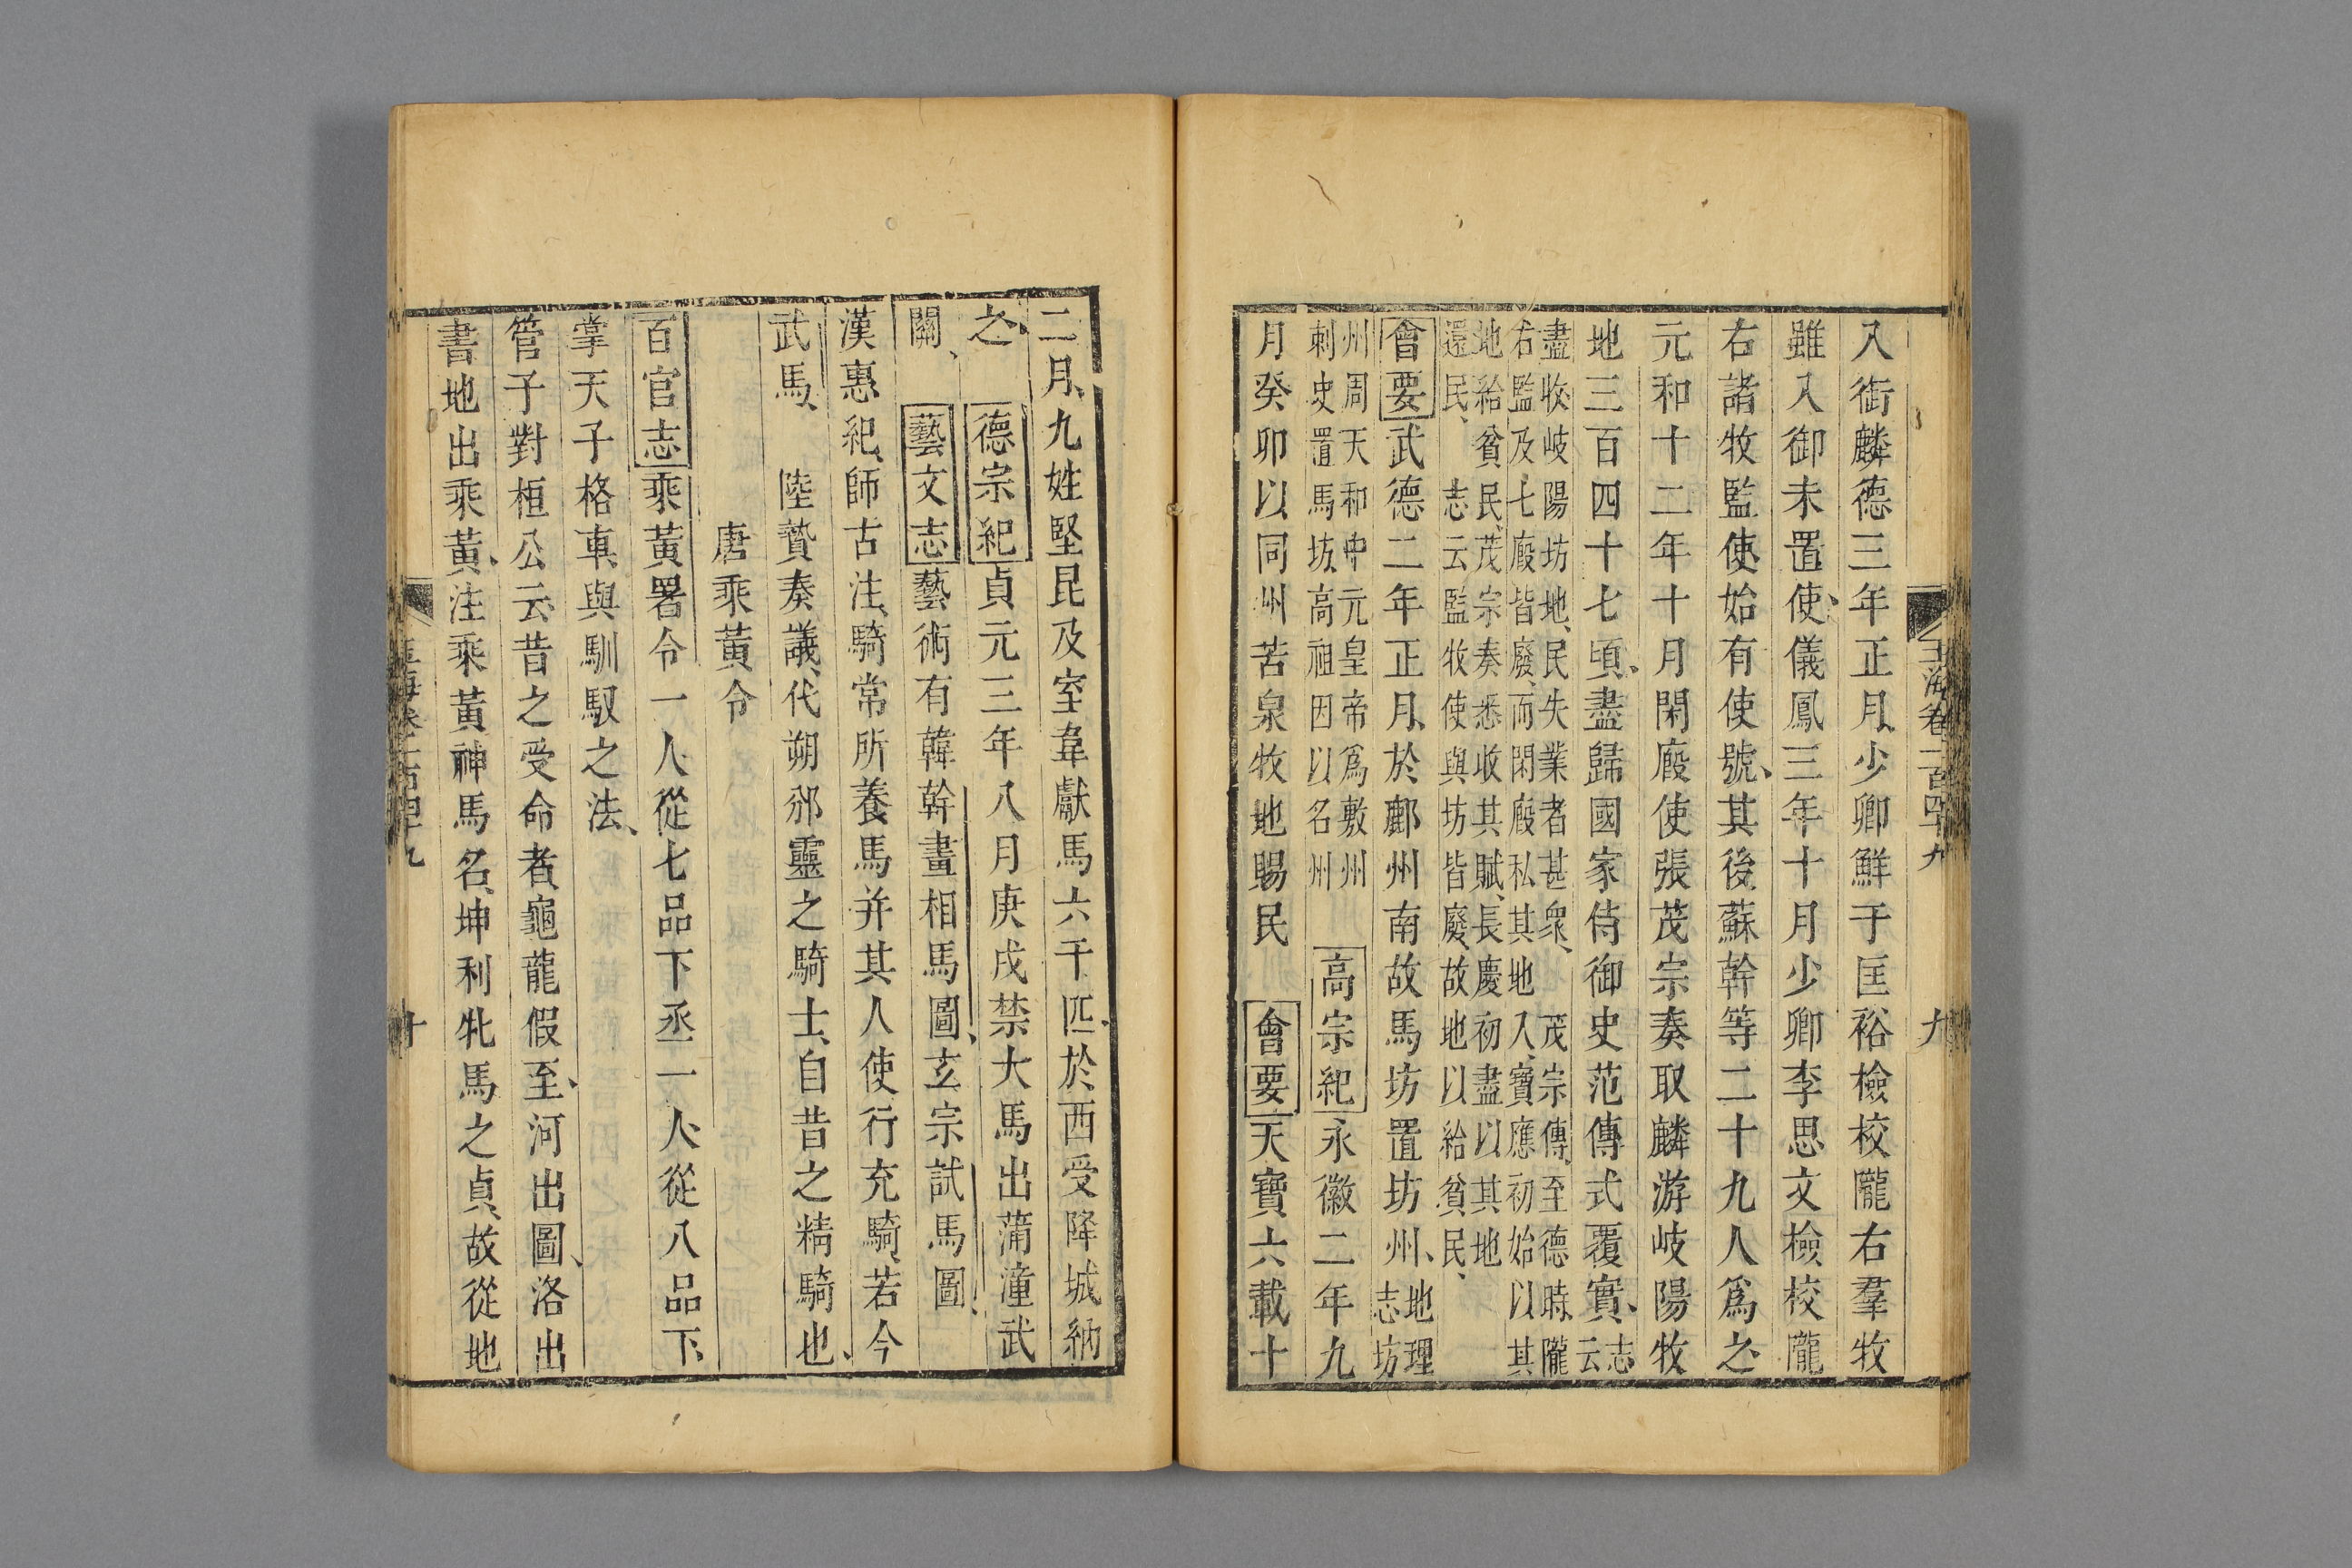 玉海卷一百四十九 九
入銜麟德三年正月少卿鮮于匡裕檢校隴右羣牧
雖入御未置使儀鳳三年十月少卿李思文檢校隴
右諸牧監使始有使號其後蘇幹等二十九人爲之
元和十二年十月閑廄使張茂宗奏取麟游岐陽牧
地三百四十七頃盡歸國家侍御史范傳式覆實志云
盡收岐陽坊地民失業者甚衆 茂宗傳至德時隴
右監及七廄皆廢而閑廄私其地入寶應初始以其
地給貧民茂宗奏悉收其賦長慶初盡以其地
還民 志云監牧使與坊皆廢故地以給貧民
會要武德二年正月於鄜州南故馬坊置坊州地理志坊
州周天和中元皇帝爲敷州
刺史置馬坊高祖因以名州
高宗紀永徽二年九
月癸卯以同州苦泉牧地賜民 會要天寶六載十
二月九姓堅昆及室韋獻馬六千匹於西受降城納
之 德宗紀貞元三年八月庚戌禁大馬出蒲潼武
關 藝文志藝術有韓幹畫相馬圖玄宗試馬圖
漢惠紀師古注騎常所養馬并其人使行充騎若今
武馬 陸贄奏議代朔邠靈之騎士自昔之精騎也
唐乘黃令
百官志乘黃署令一人從七品下丞一人從八品下
掌天子格車與馴馭之法
管子對桓公云昔之受命者龜龍假至河出圖洛出
書地出乘黃注乘黃神馬名坤利牝馬之貞故從地
玉海卷一百四十九 十